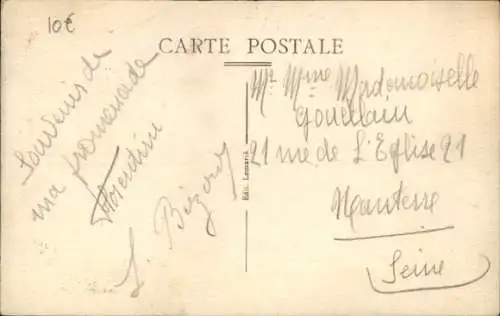 10€
CARTE POSTALE
Souvenirs de
ma promenade
Edit. Lemarié
Mr Mme Mademoiselle
21 rue de L'Eglise 21
Nanterre
Seine